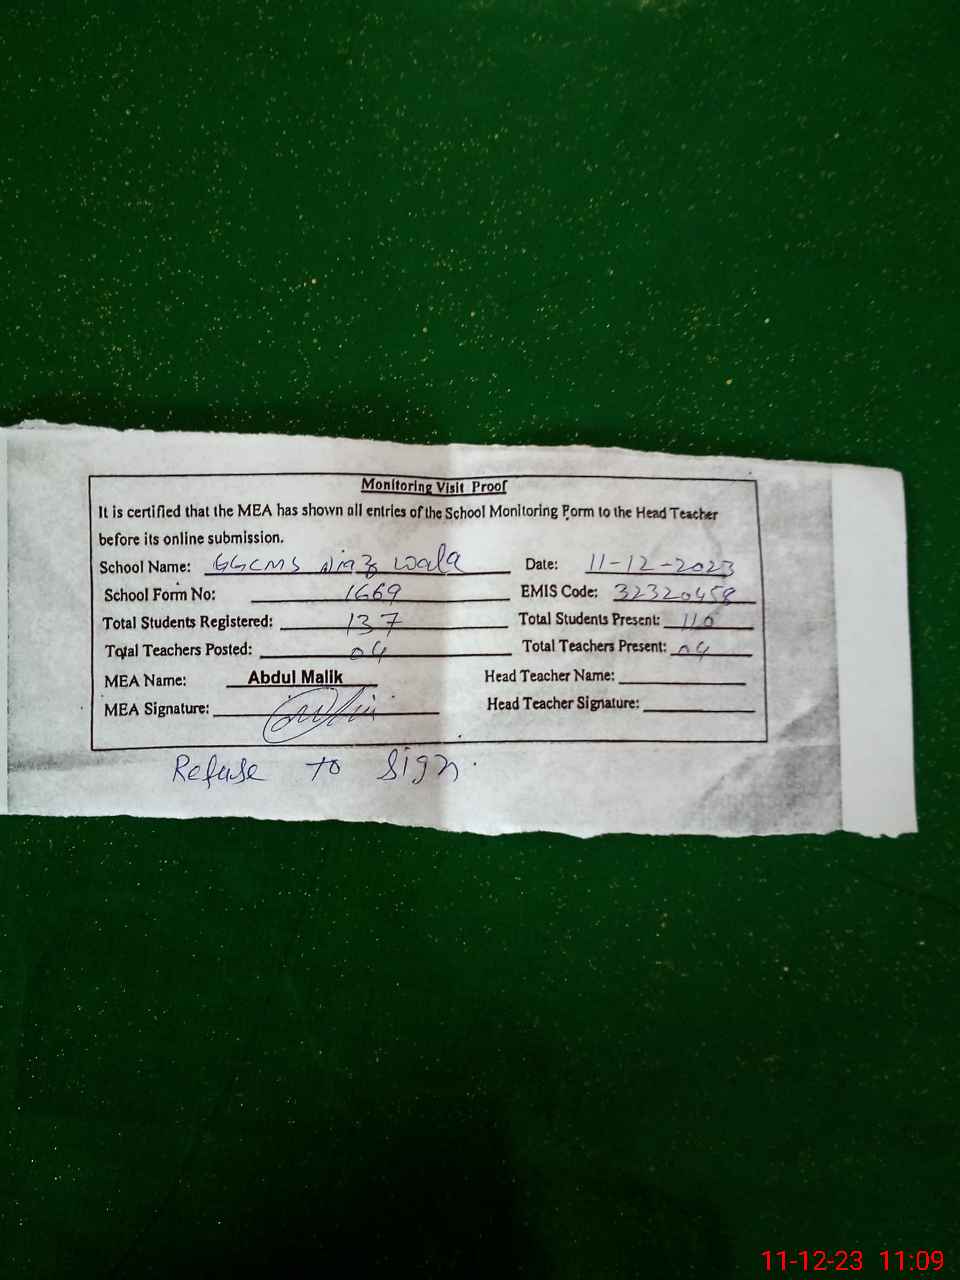 Monitoring Visit Proof
It is certified that the MEA has shown all entries of the School Monitoring Form to the Head Teacher
before its online submission.
School Name: GGCMS Niaz wala Date: 11-12-2023
School Form No: 1669 EMIS Code: 32320458
Total Students Registered: 137 Total Students Present: 110
Total Teachers Posted: 04 Total Teachers Present: 04
MEA Name: Abdul Malik Head Teacher Name:
MEA Signature: Head Teacher Signature:
Refuse to sign.
11-12-23 11:09